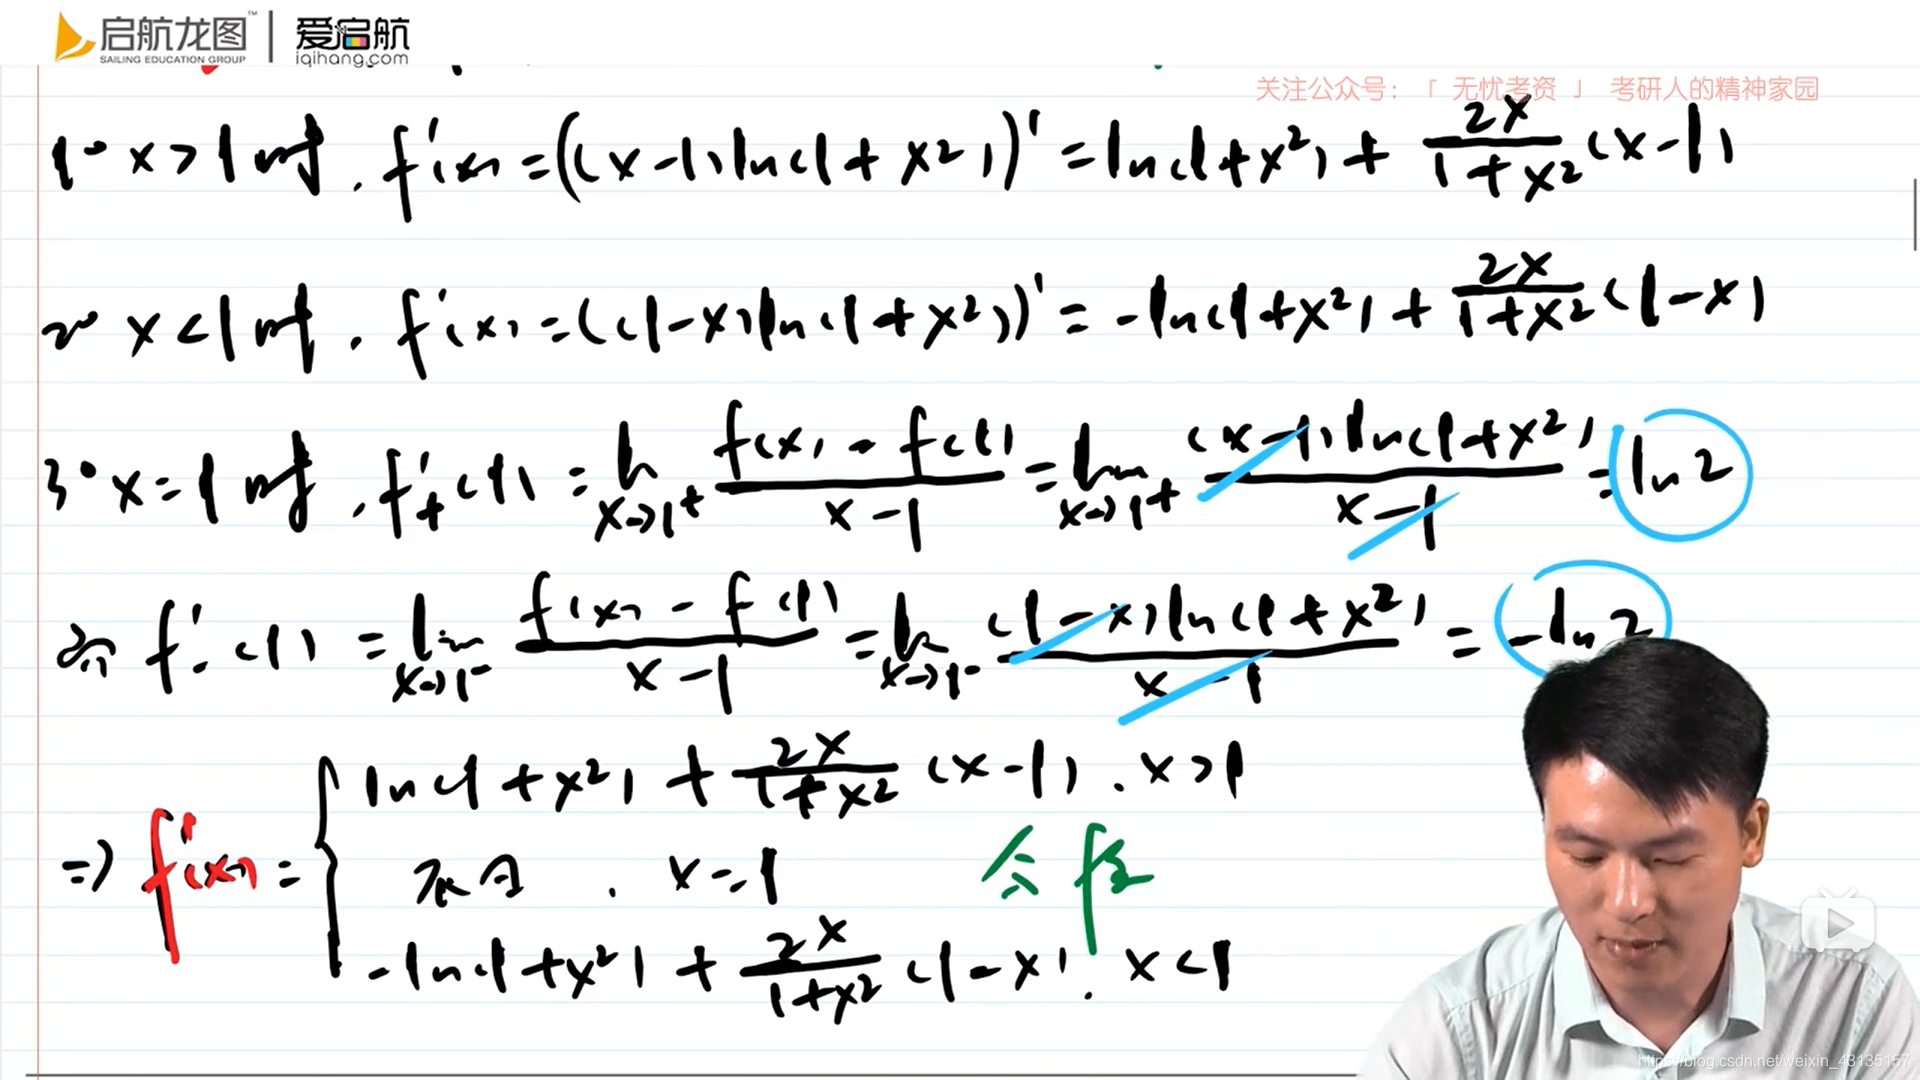 启航龙图™ | 爱启航
SAILING EDUCATION GROUP iqihang.com
关注公众号:「 无忧考资 」 考研人的精神家园
1° x>1时, f'(x)=((x-1)ln(1+x²))'=ln(1+x²)+\frac{2x}{1+x²}(x-1)
2° x<1时, f'(x)=((1-x)ln(1+x²))'=-ln(1+x²)+\frac{2x}{1+x²}(1-x)
3° x=1时, f'₊(1)=lim_{x→1⁺}\frac{f(x)-f(1)}{x-1}=lim_{x→1⁺}\frac{(x-1)ln(1+x²)}{x-1}=ln2
f'₋(1)=lim_{x→1⁻}\frac{f(x)-f(1)}{x-1}=lim_{x→1⁻}\frac{(1-x)ln(1+x²)}{x-1}=-ln2
ln(1+x²)+\frac{2x}{1+x²}(x-1), x>1
⇒ f'(x)= { 不∃, x=1
-ln(1+x²)+\frac{2x}{1+x²}(1-x), x<1
https://blog.csdn.net/weixin_43135157